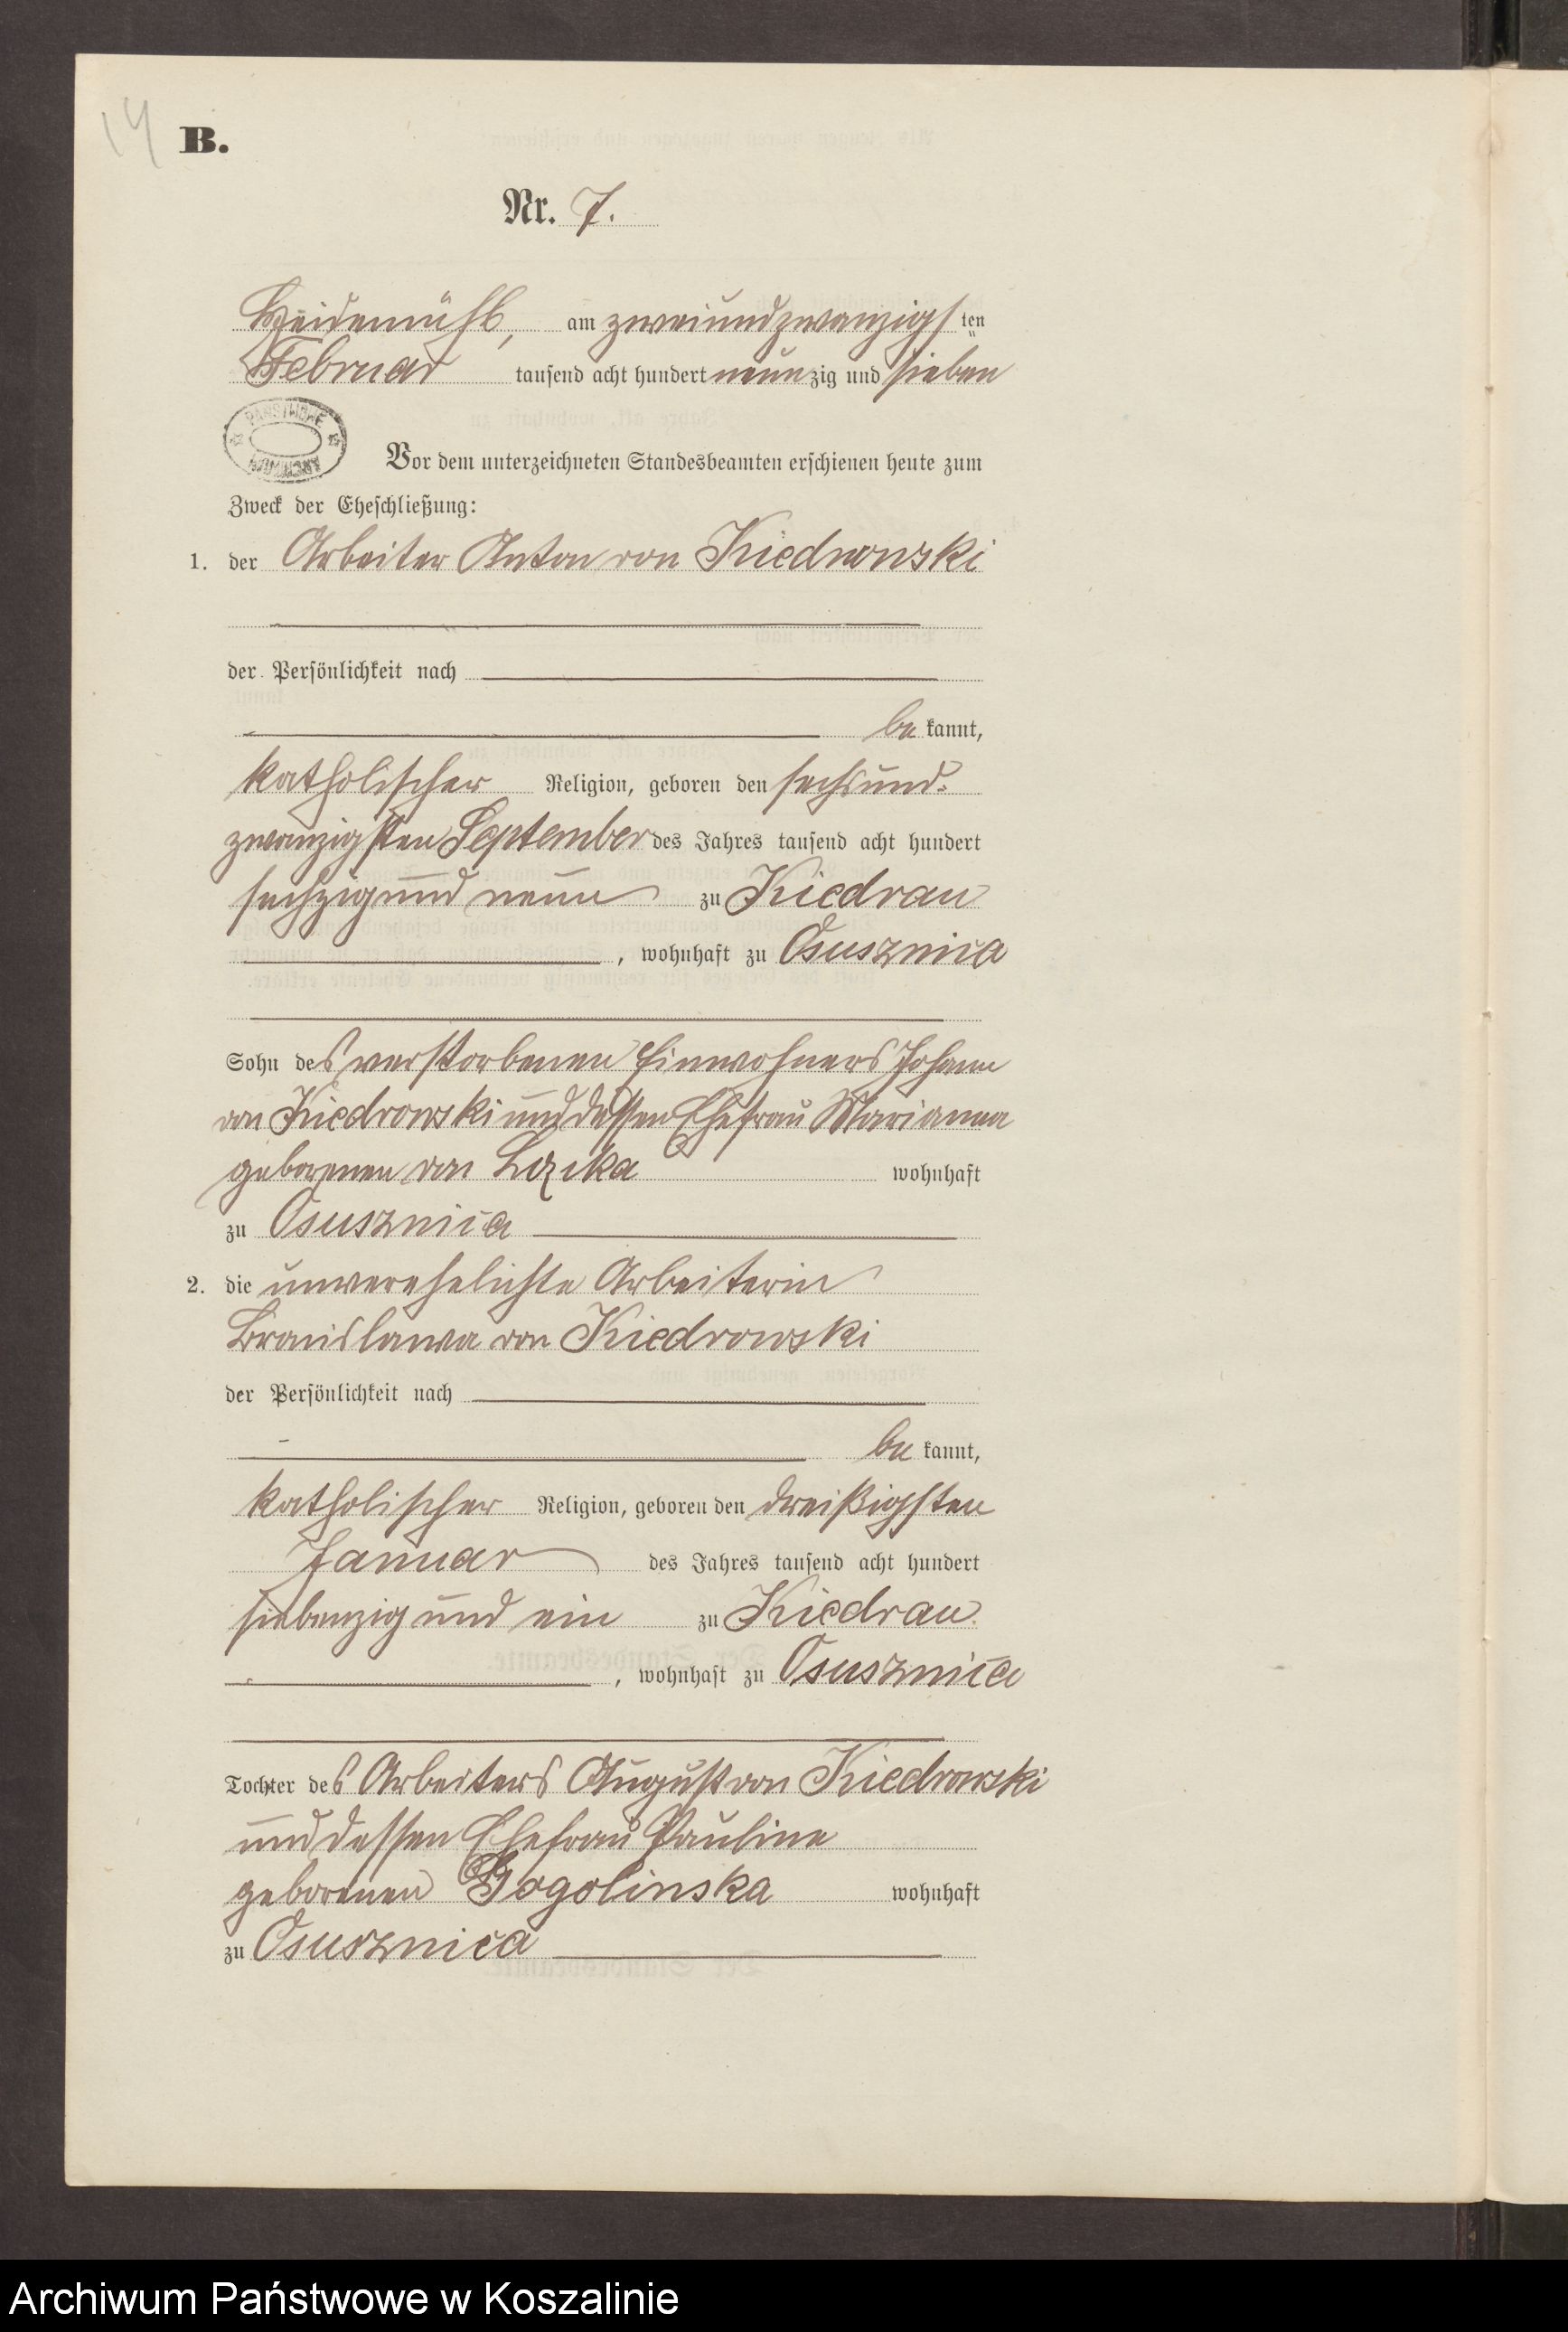 14
B.
Nr. 7.
Heidemühl, am zweiundzwanzigsten
Februar tausend acht hundert neunzig und sieben
PAŃSTWOWE
ARCHIWUM
Vor dem unterzeichneten Standesbeamten erschienen heute zum
Zweck der Eheschließung:
1. der Arbeiter Anton von Kiedrowski
der Persönlichkeit nach
be kannt,
katholischer Religion, geboren den sechsund-
zwanzigsten September des Jahres tausend acht hundert
sechzig und neun zu Kiedrau
, wohnhaft zu Osusznica
Sohn des verstorbenen Einwohners Johann
von Kiedrowski und dessen Ehefrau Marianna
geborenen von
wohnhaft
zu Osusznica
2. die unverehelichte Arbeiterin
Bronislawa von Kiedrowski
der Persönlichkeit nach
be kannt,
katholischer Religion, geboren den dreißigsten
Januar des Jahres tausend acht hundert
siebenzig und ein zu Kiedrau
, wohnhaft zu Osusznica
Tochter des Arbeiters August von Kiedrowski
und dessen Ehefrau Pauline
geborenen Gogolinska wohnhaft
zu Osusznica
Archiwum Państwowe w Koszalinie